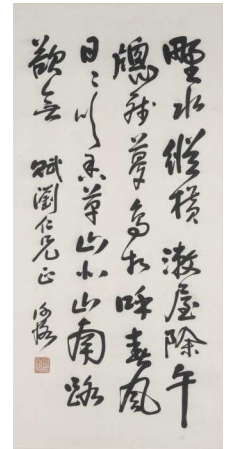 野水縱橫漱屋除午
牕殘夢鳥相呼春風
日〻吹香草山北山南路
欲無 斌瀏仁兄正